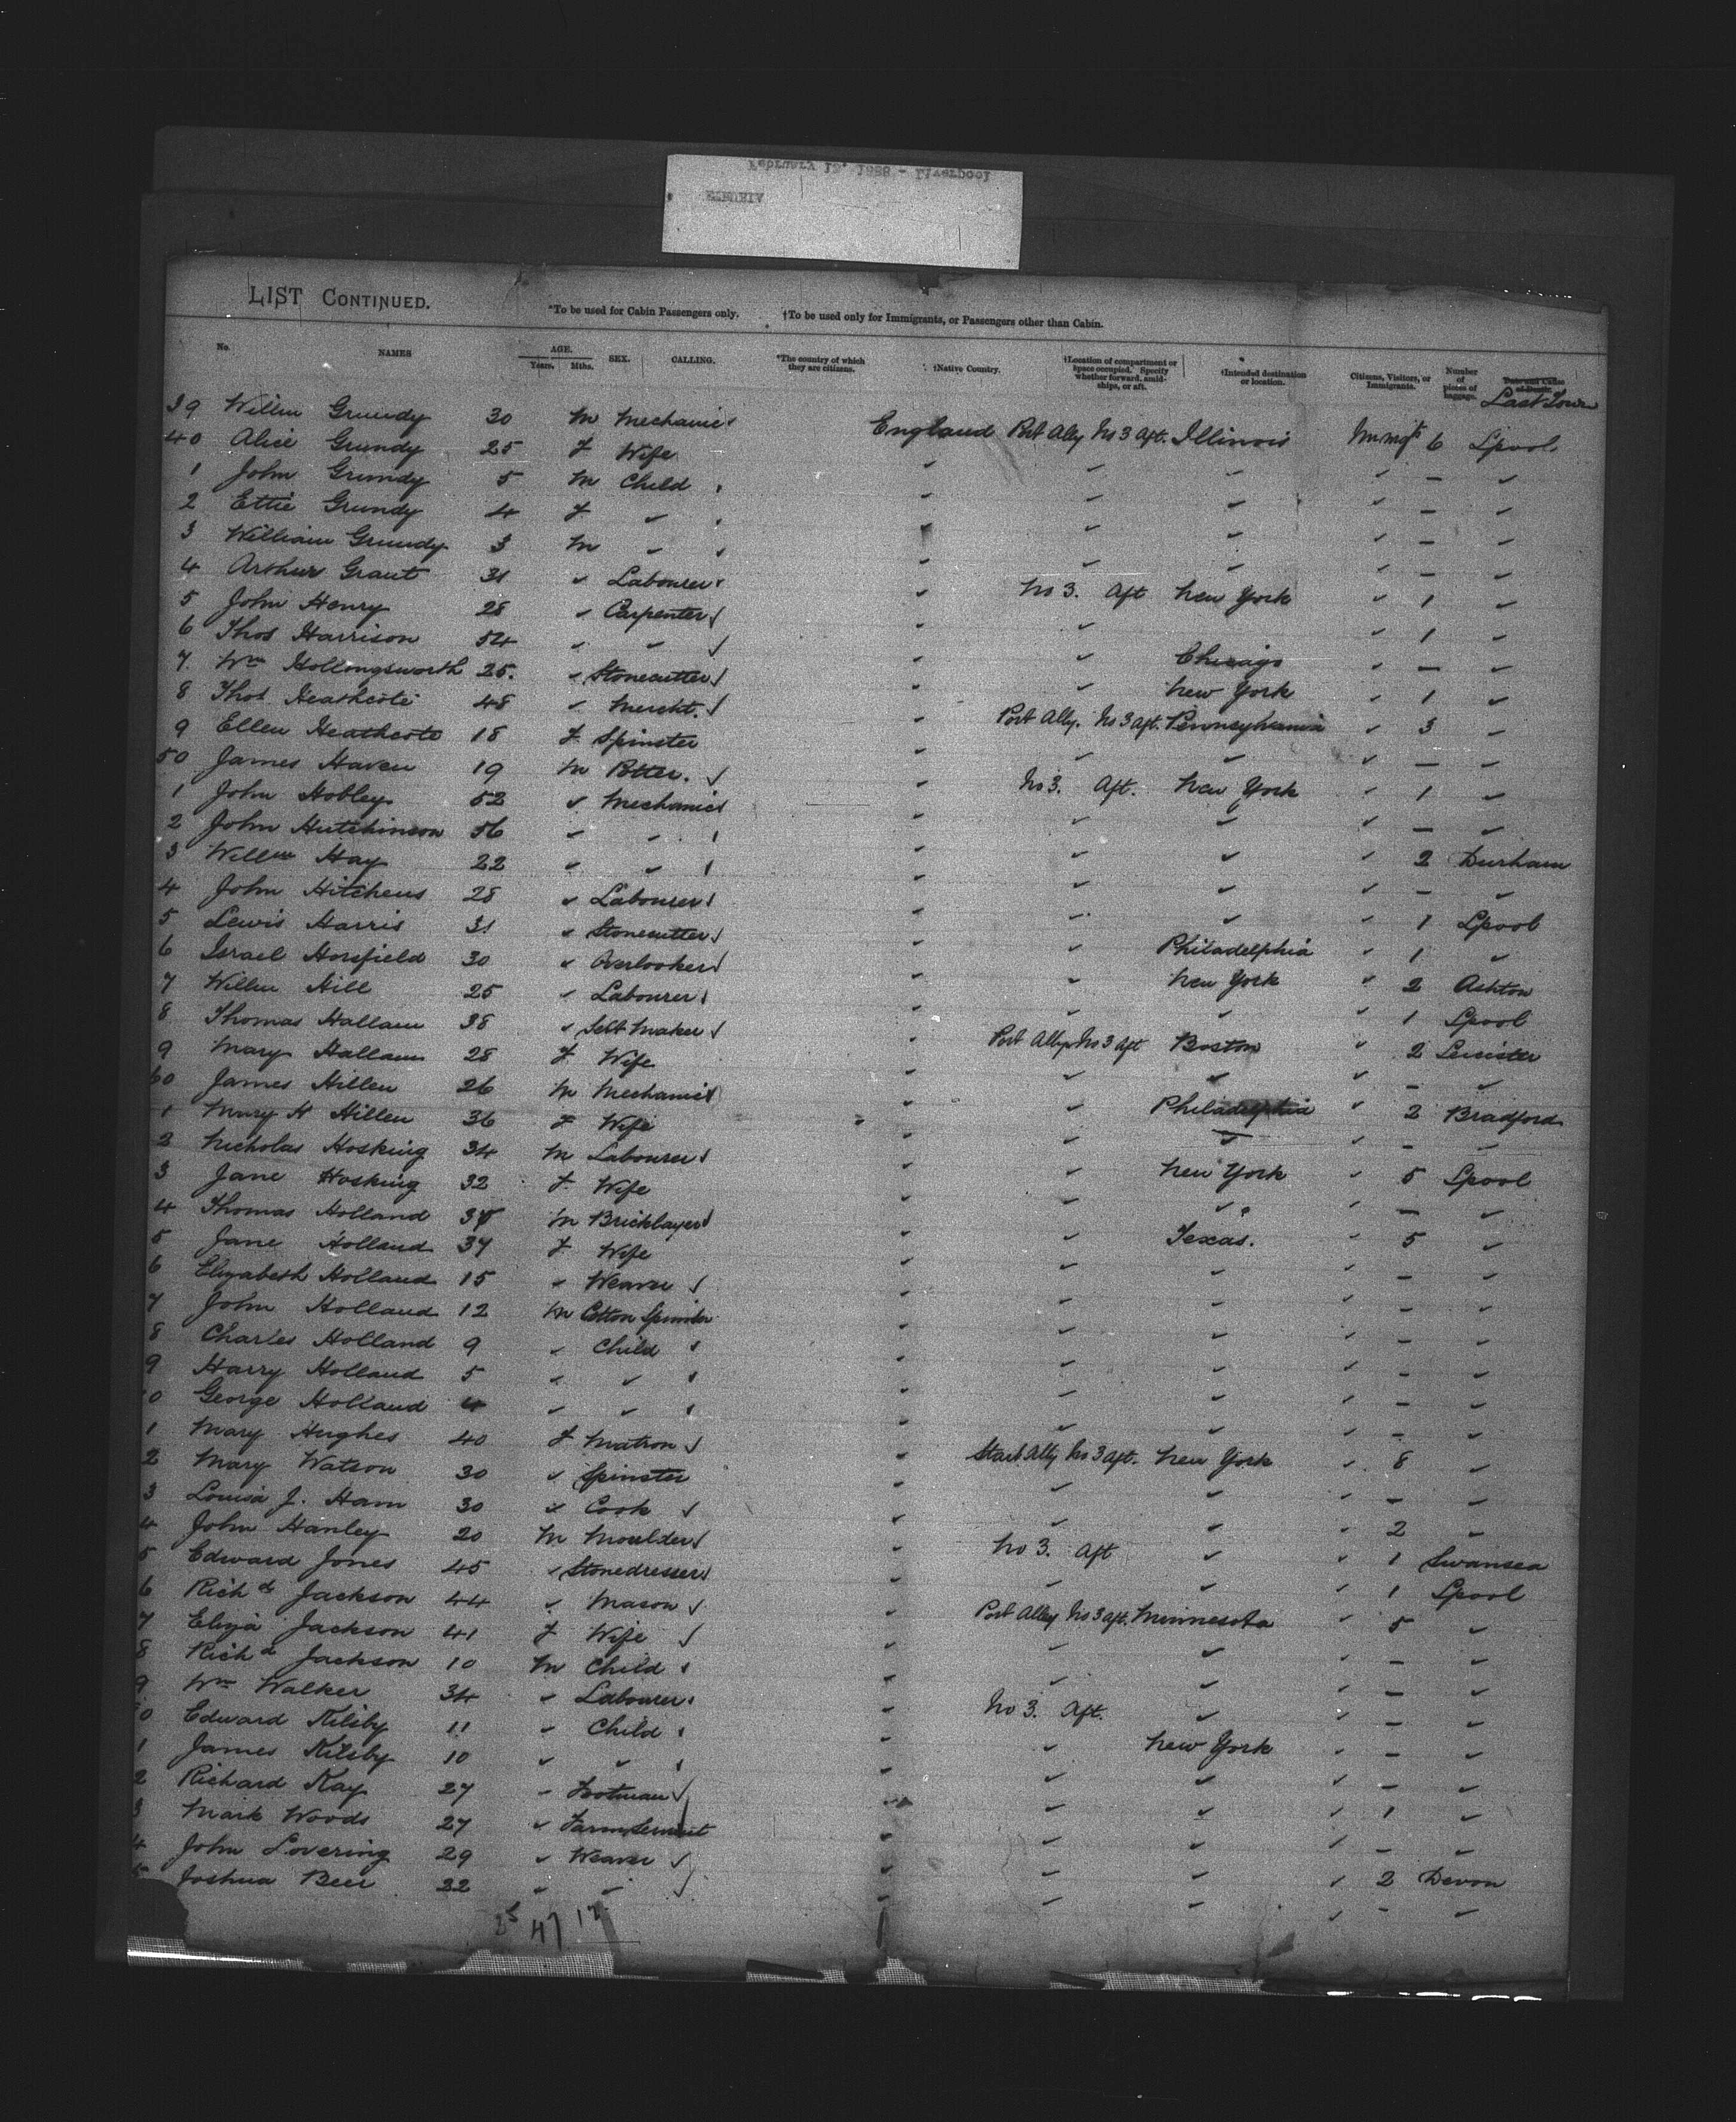 LIST CONTINUED.
*To be used for Cabin Passengers only. †To be used only for Immigrants, or Passengers other than Cabin.
No. NAMES AGE. Years. Mths. SEX. CALLING. *The country of which they are citizens. †Native Country. †Location of compartment or space occupied. Specify whether forward, amidships, or aft. †Intended destination or location. Citizens, Visitors, or Immigrants. Number of pieces of baggage. Last Town
39 Willm Grundy 30 M Mechanic England Port Ally No 3 Aft. Illinois 6 Lpool
40 Alice Grundy 25 F Wife ✓ ✓ ✓ ✓ — ✓
1 John Grundy 5 M Child ✓ ✓ ✓ ✓ — ✓
2 Ettie Grundy 4 F ✓ ✓ ✓ ✓ ✓ — ✓
3 William Grundy 3 M ✓ ✓ ✓ ✓ ✓ — ✓
4 Arthur Grant 31 ✓ Labourer ✓ No 3. Aft New York ✓ 1 ✓
5 John Henry 28 ✓ Carpenter ✓ ✓ ✓ 1 ✓
6 Thos Harrison 54 ✓ ✓ ✓ ✓ Chicago ✓ — ✓
7 Wm Hollongsworth 25. ✓ Stonecutter ✓ ✓ New York ✓ 1 ✓
8 Thos Heathcote 48 ✓ Mercht. ✓ Port Ally. No 3 Aft. Pennsylvania ✓ 3 ✓
9 Ellen Heathcote 18 F Spinster ✓ ✓ ✓ ✓ — ✓
50 James Haven 19 M Potter. ✓ No 3. Aft. New York ✓ 1 ✓
1 John Hobley 52 ✓ Mechanic ✓ ✓ ✓ ✓ — ✓
2 John Hutchinson 56 ✓ ✓ ✓ ✓ ✓ ✓ 2 Durham
3 Willm Hay 22 ✓ ✓ ✓ ✓ ✓ ✓ — ✓
4 John Hitchens 28 ✓ Labourer ✓ ✓ ✓ ✓ 1 Lpool
5 Lewis Harris 31 ✓ Stonecutter ✓ ✓ Philadelphia ✓ 1 ✓
6 Israel Horsfield 30 ✓ Overlooker ✓ ✓ New York ✓ 2 Ashton
7 Willm Hill 25 ✓ Labourer ✓ ✓ ✓ ✓ 1 Lpool
8 Thomas Hallam 38 ✓ Maker ✓ Port Ally No 3 Aft Boston ✓ 2 Leicister
9 Mary Hallam 28 F Wife ✓ ✓ ✓ ✓ — ✓
60 James Hillen 26 M Mechanic ✓ ✓ Philadelphia ✓ 2 Bradford
1 Mary H Hillen 36 F Wife ✓ ✓ ✓ ✓ — ✓
2 Nicholas Hosking 34 M Labourer ✓ ✓ New York ✓ 5 Lpool
3 Jane Hosking 32 F Wife ✓ ✓ ✓ ✓ — ✓
4 Thomas Holland M Bricklayer ✓ ✓ Texas. ✓ 5 ✓
5 Jane Holland 37 F Wife ✓ ✓ ✓ ✓ — ✓
6 Elizabeth Holland 15 ✓ Weaver ✓ ✓ ✓ ✓ — ✓
7 John Holland 12 M Cotton Spinster ✓ ✓ ✓ ✓ — ✓
8 Charles Holland 9 ✓ Child ✓ ✓ ✓ ✓ — ✓
9 Harry Holland 5 ✓ ✓ ✓ ✓ ✓ ✓ — ✓
0 George Holland 4 ✓ ✓ ✓ ✓ ✓ ✓ — ✓
1 Mary Hughes 40 F Matron ✓ Starb Ally No 3 Aft. New York ✓ 8 ✓
2 Mary Watson 30 ✓ Spinster ✓ ✓ ✓ ✓ — ✓
3 Louisa J. Ham 30 ✓ Cook ✓ ✓ ✓ ✓ 2 ✓
4 John Hanley 20 M Moulder ✓ No 3. Aft ✓ ✓ 1 Swansea
5 Edward Jones 45 ✓ Stonedresser ✓ ✓ ✓ ✓ 1 Lpool
6 Richd Jackson 44 ✓ Mason ✓ Port Alley No 3 Aft. Minnesota ✓ 5 ✓
7 Eliza Jackson 41 F Wife ✓ ✓ ✓ ✓ — ✓
8 Richd Jackson 10 M Child ✓ ✓ ✓ ✓ — ✓
9 Wm Walker 34 ✓ Labourer ✓ No 3. Aft. ✓ ✓ — ✓
0 Edward Kilsby 11 ✓ Child ✓ ✓ New York ✓ — ✓
1 James Kilsby 10 ✓ ✓ ✓ ✓ ✓ ✓ — ✓
2 Richard Kay 27 ✓ Footman ✓ ✓ ✓ ✓ 1 ✓
3 Mark Woods 27 ✓ Farm Servant ✓ ✓ ✓ ✓ — ✓
4 John Lovering 29 ✓ Weaver ✓ ✓ ✓ ✓ 2 Devon
5 Joshua Beer 22 ✓ ✓ ✓ ✓ ✓ ✓ — ✓
47 12